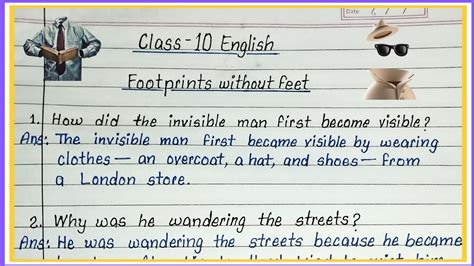 Date
Class-10 English
Footprints without feet
1. How did the invisible man first become visible?
Ans: The invisible man first became visible by wearing
clothes — an overcoat, a hat, and shoes — from
a London store.
2. Why was he wandering the streets?
Ans: He was wandering the streets because he became